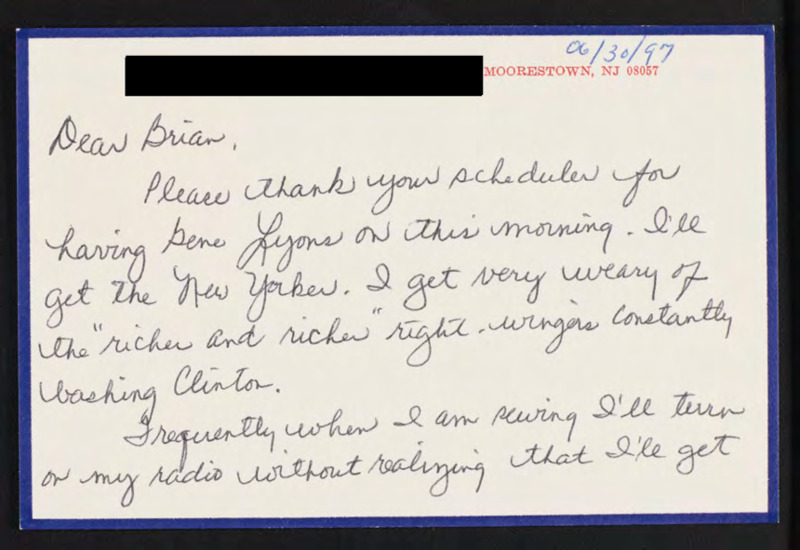 06/30/97
MOORESTOWN, NJ 08057
Dear Brian,
Please thank your scheduler for
having Gene Lyons on this morning. I'll
get the New Yorker. I get very weary of
the "richer and richer" right-wingers constantly
bashing Clinton.
Frequently when I am sewing I'll turn
on my radio without realizing that I'll get